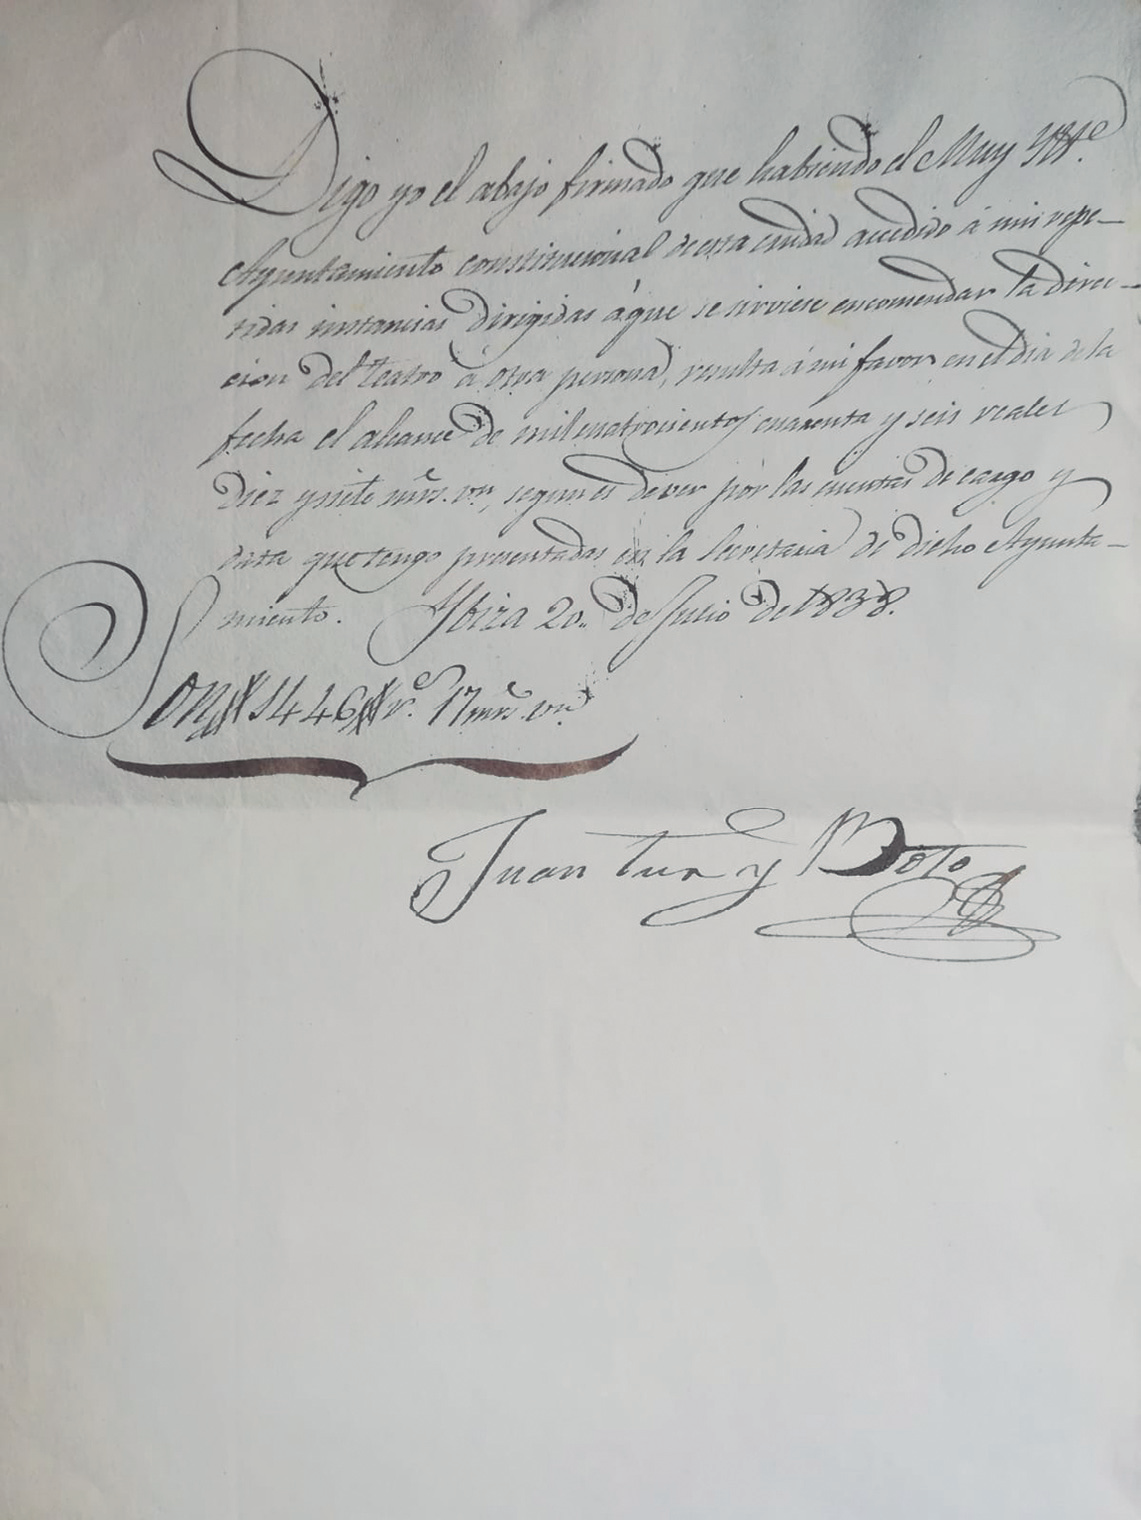 Digo yo el abajo firmado que habiendo el Muy Yltr.e
Ayuntamiento constitucional de esta ciudad accedido á mis repe-
tidas instancias dirigidas á que se sirviese encomendar la direc-
cion del teatro á otra persona, resulta á mi favor en el dia de la
fecha el alcance de mil cuatrocientos cuarenta y seis reales
diez y siete mrs. vn, segun es de ver por las cuentas de cargo y
data que tengo presentadas en la Secretaria de dicho Ayunta-
miento. Ybiza 20,, de Julio de 1838.
Son 1446 r.s 17 mrs. vn.
Juan Tur y Boto